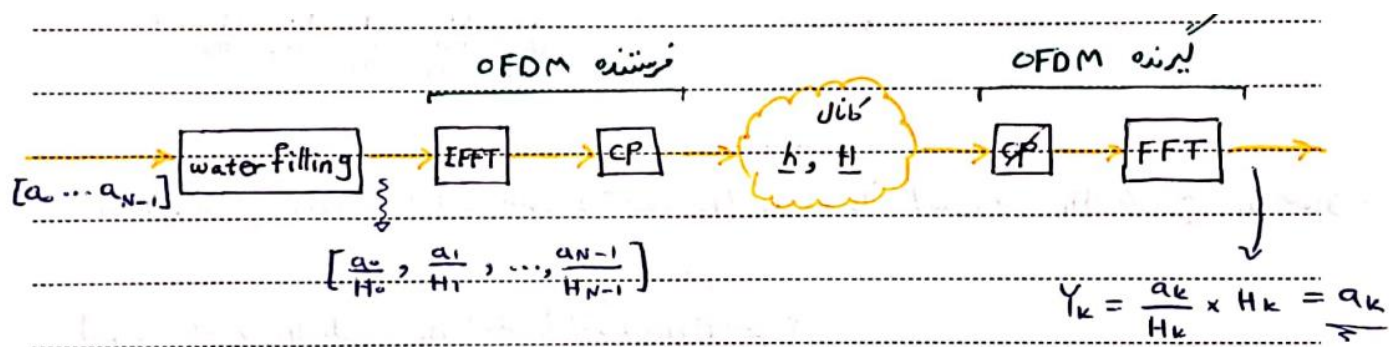 فرستنده OFDM
گیرنده OFDM
[a₀ ... a_{N-1}]
water filling
EFFT
CP
کانال
h, H
CP
FFT
[a₀/H₀, a₁/H₁, ..., a_{N-1}/H_{N-1}]
Y_k = a_k/H_k × H_k = a_k